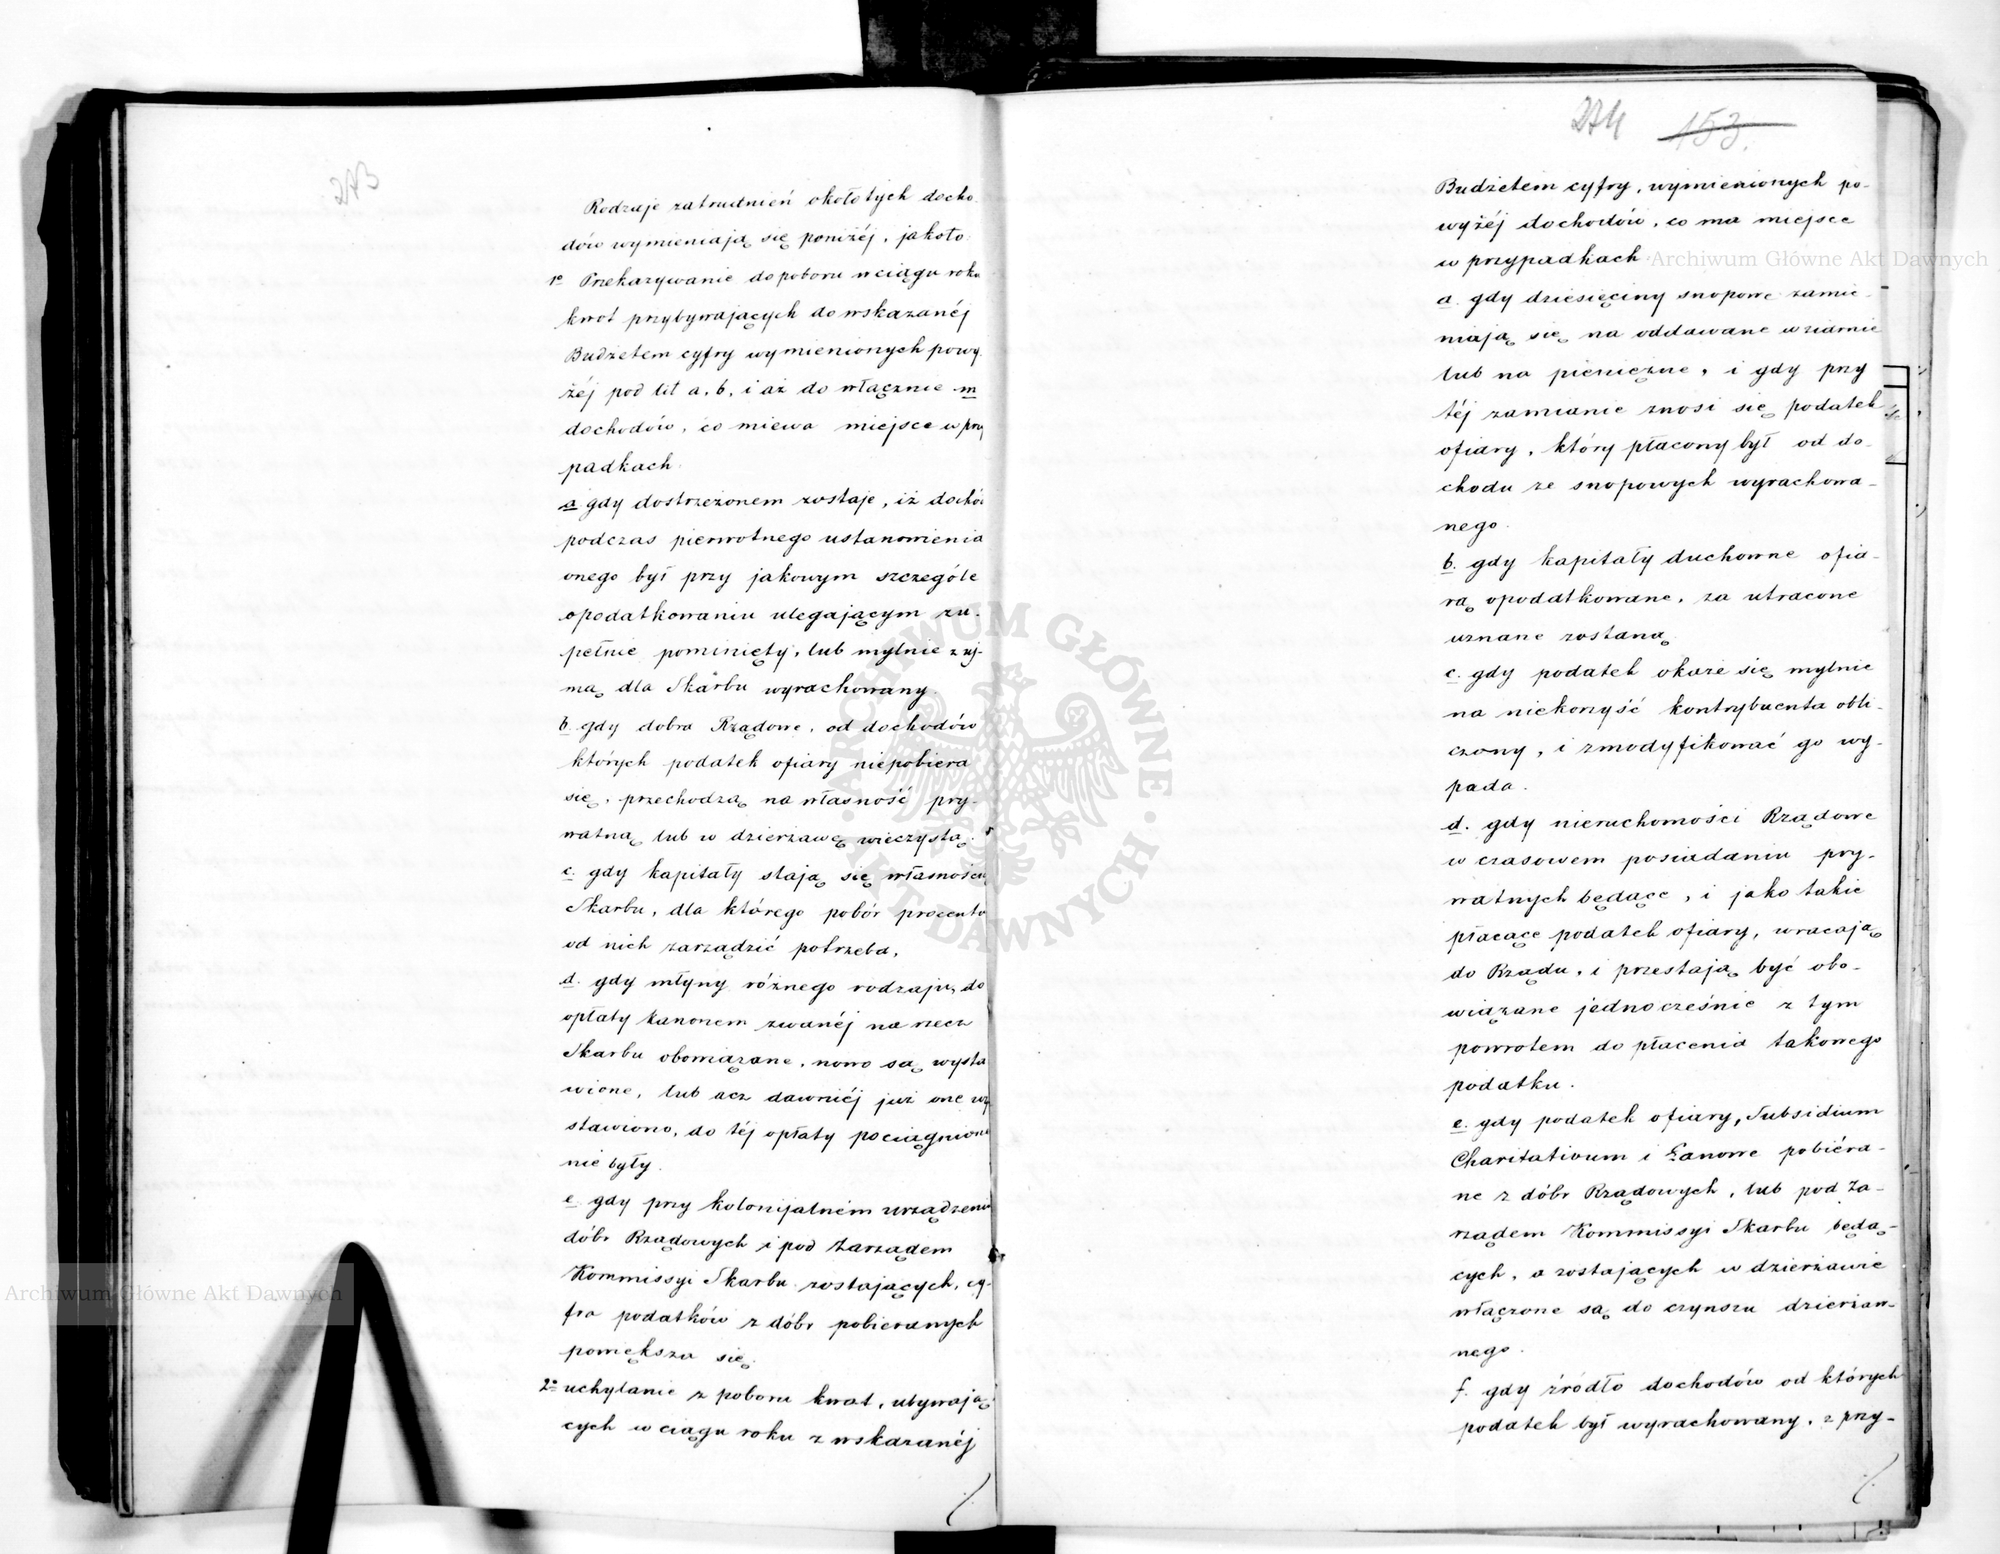 273
Rodzaje zatrudnień około tych docho-
dów wymieniają się poniżéj, jakoto:
1o Przekazywanie do poboru w ciągu roku
kwot przybywających do wskazanéj
Budżetem cyfry wymienionych powy-
żéj pod lit a, b, i aż do włącznie m
dochodów, co miewa miejsce w przy
padkach.
a gdy dostrzeżonem zostaje, iż dochód
podczas pierwotnego ustanowienia
onego był przy jakowym szczególe
opodatkowaniu ulegającym zu-
pełnie pominięty, lub mylnie z uj-
mą dla Skarbu wyrachowany.
b. gdy dobra Rządowe, od dochodów
których podatek ofiary niepobiera
się, przechodzą na własność pry-
watną lub w dzierżawę wieczystą.
c. gdy kapitały stają się własnością
Skarbu, dla którego pobór procentu
od nich zarządzić potrzeba,
d. gdy młyny różnego rodzaju, do
opłaty kanonem zwanéj na rzecz
Skarbu obowiązane, nowo są wysta
wione, lub acz dawniéj już one wy
stawiono, do téj opłaty pociągnione
nie były.
e. gdy przy kolonijalném urządzeniu
dóbr Rządowych i pod Zarządem
Kommissyi Skarbu zostających, cy-
fra podatków z dóbr pobieranych
powększa się.
2o uchylanie z poboru kwot, ubywają-
cych w ciągu roku z wskazanéj
274 153.
Budżetem cyfry, wymienionych po-
wyżéj dochodów, co ma miejsce
w przypadkach
a. gdy dziesięciny snopowe zamie-
niają się na oddawane w ziarnie
lub na pieniężne, i gdy przy
téj zamianie znosi się podatek
ofiary, który płacony był od do-
chodu ze snopowych wyrachowa-
nego.
b. gdy kapitały duchowne ofia-
rą opodatkowane, za utracone
uznane zostaną.
c. gdy podatek okaże się mylnie
na niekorzyść kontrybuenta obli-
czony, i zmodyfikować go wy-
pada.
d. gdy nieruchomości Rządowe
w czasowem posiadaniu pry-
watnych będące, i jako takie
płacące podatek ofiary, wracają
do Rządu, i przestają być obo-
wiązane jednocześnie z tym
powrotem do płacenia takowego
podatku.
e. gdy podatek ofiary, Subsidium
Charitativum i Łanowe pobiéra-
ne z dóbr Rządowych, lub pod Za-
rządem Kommissyi Skarbu będą-
cych, a zostających w dzierżawie
włączone są do czynszu dzierżaw-
nego.
f. gdy źródło dochodów od których
podatek był wyrachowany, z przy-
Archiwum Główne Akt Dawnych
Archiwum Główne Akt Dawnych
ARCHIWUM GŁÓWNE · AKT DAWNYCH ·